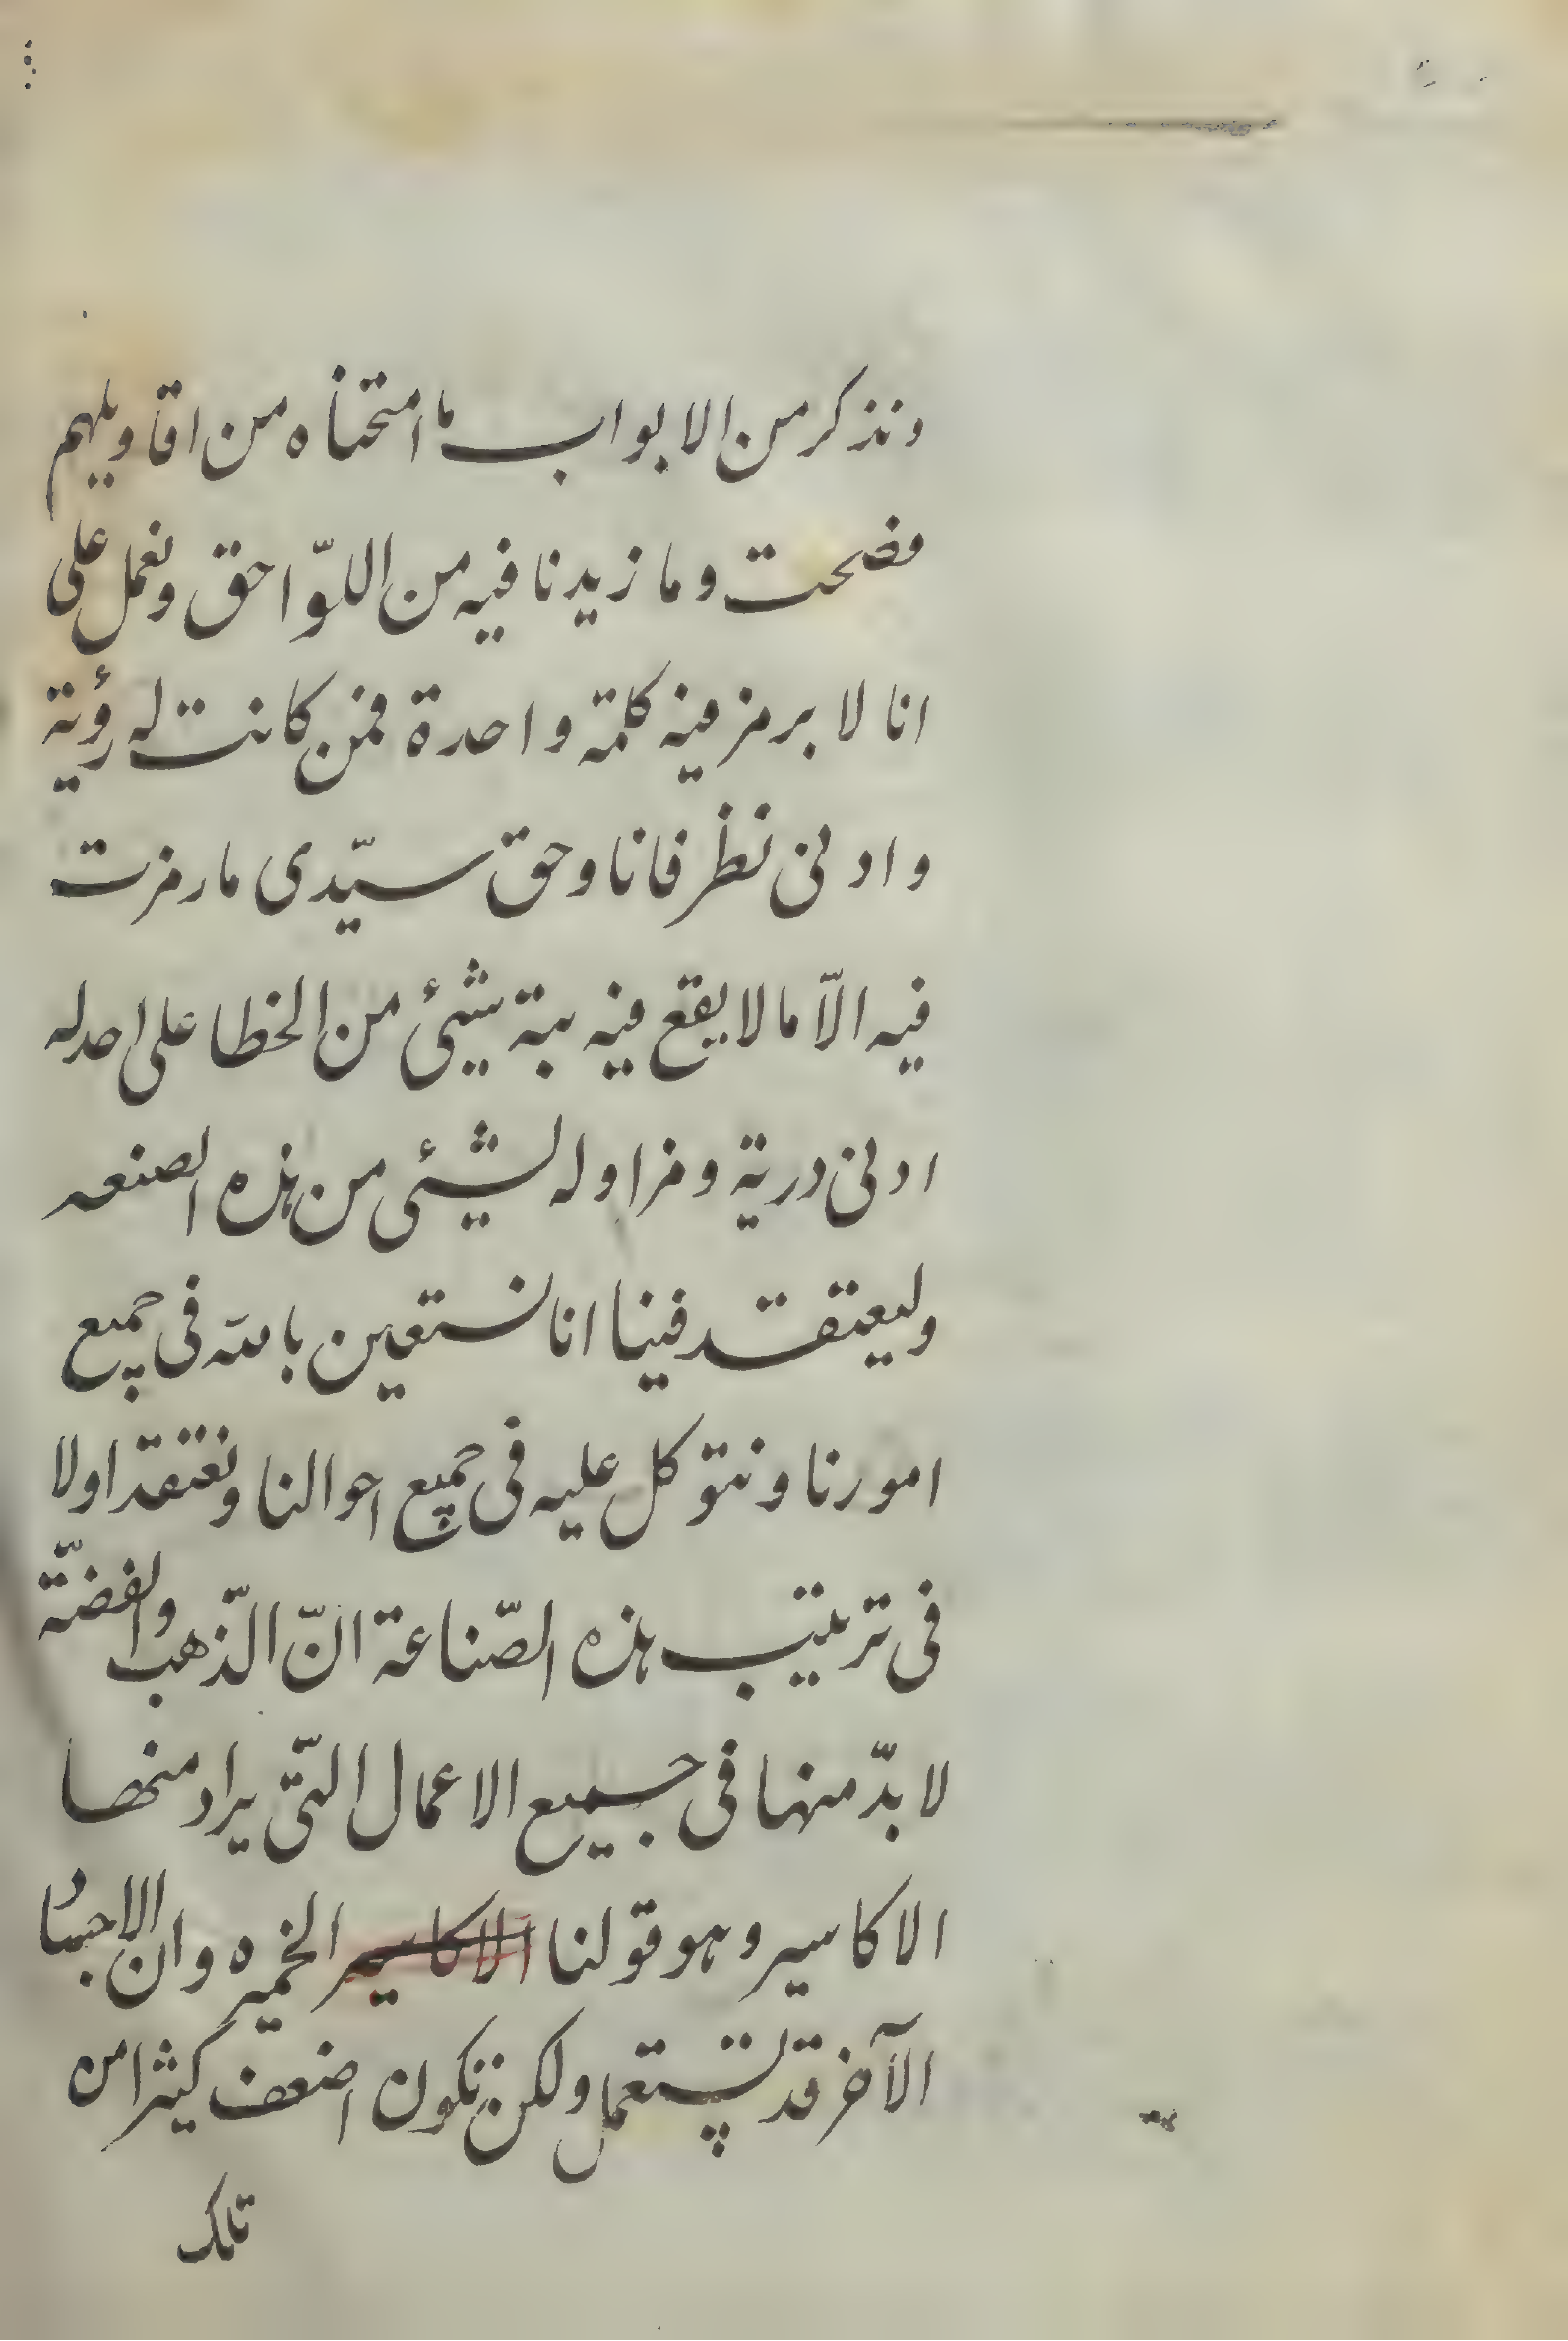 ونذكر من الابواب ما امتحناه من اقاويلهم
فضحت وما زيدنا فيه من اللّواحق ونعمل على
انا لا برمز فيه كلمة واحدة فمن كانت له رؤية
وادنى نظر فانا وحق سيّدى ما رمزت
فيه الاّ ما لا يقع فيه بتة شيئ من الخطا على احد له
ادنى دربة ومزاوله لشيئ من هذه الصنعه
وليعتقد فينا انا نستعين بالله فى جميع
امورنا ونتوكل عليه فى جميع احوالنا ونعتقد اولا
فى ترتيب هذه الصّناعة انّ الذّهب والفضّة
لا بدّ منها فى جميع الاعمال التّى يراد منها
الاكاسير وهو قولنا الاكاسير الخميره وان الاجساد
الآخر قد تستعمل ولكن تكون اضعف كثيرا من
تلك